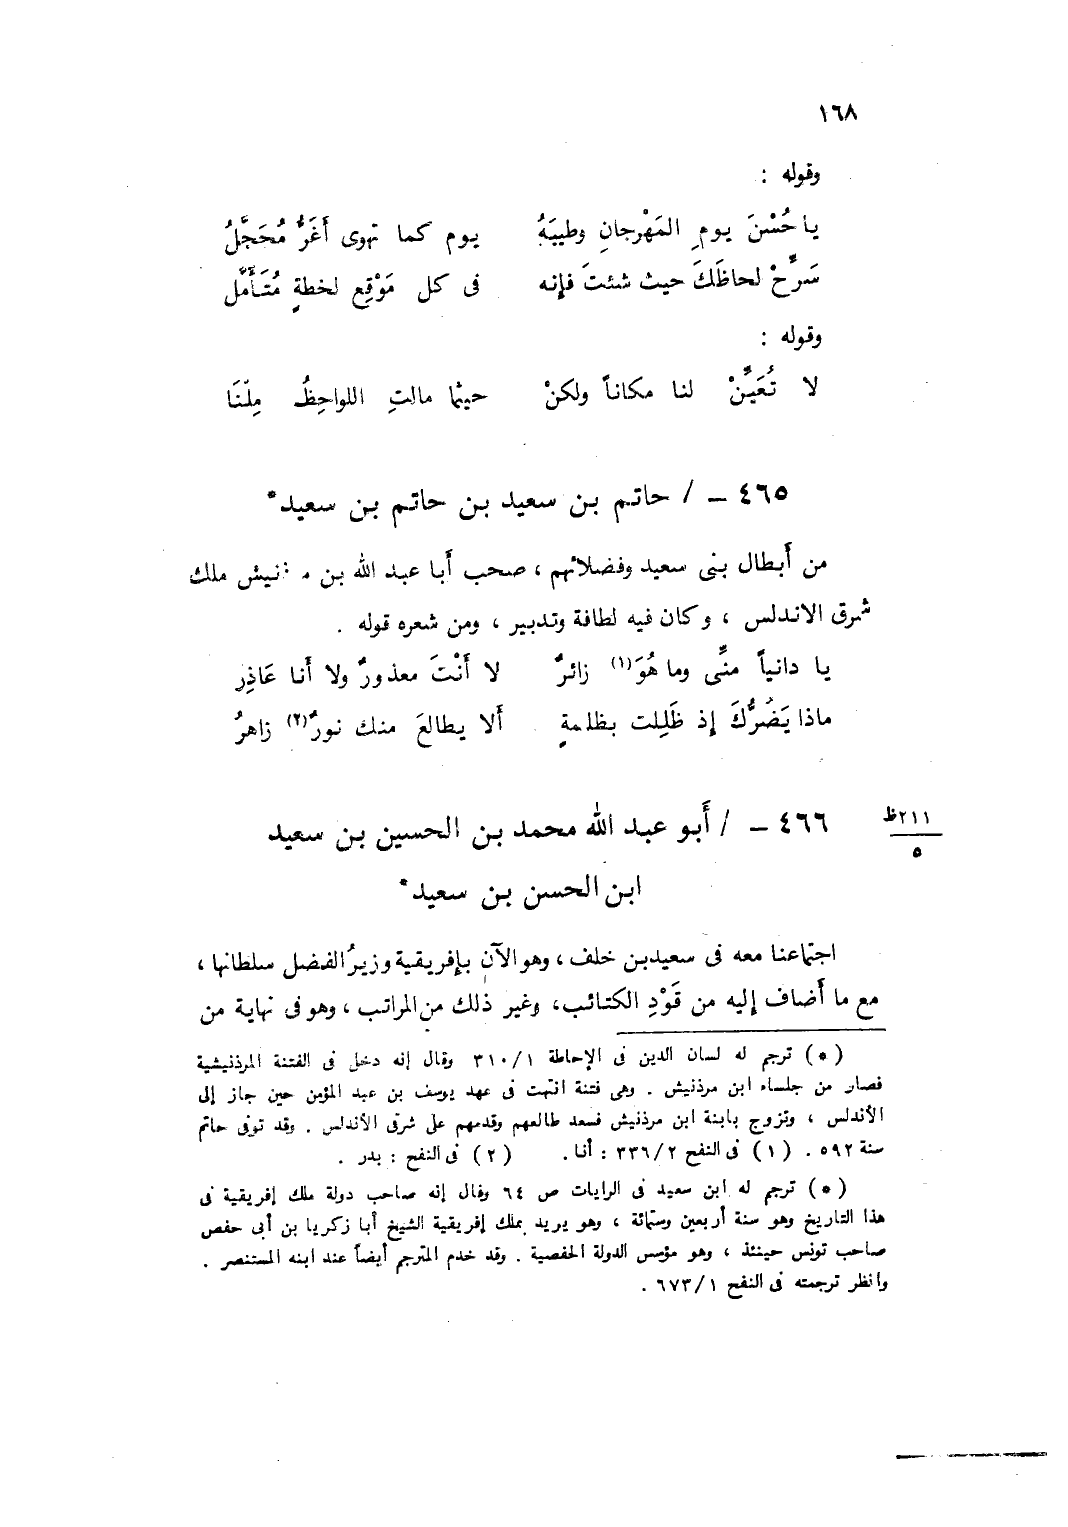 ١٦٨
وقوله :
يا حُسْنَ يومِ المَهْرجانِ وطيبَهُ يوم كما تهوى أَغَرُّ مُحَجَّلُ
سَرِّحْ لحاظَكَ حيث شئتَ فإنه فى كل مَوْقِعِ لحظةٍ مُتَأَمَّل
وقوله :
لا تُعَيِّنْ لنا مكاناً ولكنْ حيثما مالتِ اللواحِظُ مِلْنَا
٤٦٥ – / حاتم بن سعيد بن حاتم بن سعيد*
من أَبطال بنى سعيد وفضلائهم ، صحب أَبا عبد الله بن ملك
شرق الاندلس ، وكان فيه لطافة وتدبير ، ومن شعره قوله .
يا دانياً منِّى وما هُوَ(١) زائرٌ لا أَنْتَ معذورٌ ولا أَنا عَاذِر
ماذا يَضُرُّكَ إذ ظَلِلت بظلمةٍ أَلا يطالعَ منك نورٌ(٢) زاهرُ
٢١١ظ
٥
٤٦٦ – / أَبو عبد الله محمد بن الحسين بن سعيد
ابن الحسن بن سعيد*
اجتماعنا معه فى سعيد بن خلف ، وهو الآن بإفريقية وزيرُ الفضل سلطانها ،
مع ما أَضاف إليه من قَوْدِ الكتائب ، وغير ذلك من المراتب ، وهو فى نهاية من
(*) ترجم له لسان الدين فى الإحاطة ٣١٠/١ وقال إنه دخل فى الفتنة المرذنيشية
فصار من جلساء ابن مرذنيش . وهى فتنة انتهت فى عهد يوسف بن عبد المؤمن حين جاز إلى
الأندلس ، وتزوج بابنة ابن مرذنيش فسعد طالعهم وقدمهم على شرق الأندلس . وقد توفى حاتم
سنة ٥٩٢ . (١) فى النفح ٣٣٦/٢ : أنا . (٢) فى النفح : بدر .
(*) ترجم له ابن سعيد فى الرايات ص ٦٤ وقال إنه صاحب دولة ملك إفريقية فى
هذا التاريخ وهو سنة أربعين وستمائة ، وهو يريد بملك إفريقية الشيخ أبا زكريا بن أبى حفص
صاحب تونس حينئذ ، وهو مؤسس الدولة الحفصية . وقد خدم المترجم أيضاً عند ابنه المستنصر .
وانظر ترجمته فى النفح ٦٧٣/١ .